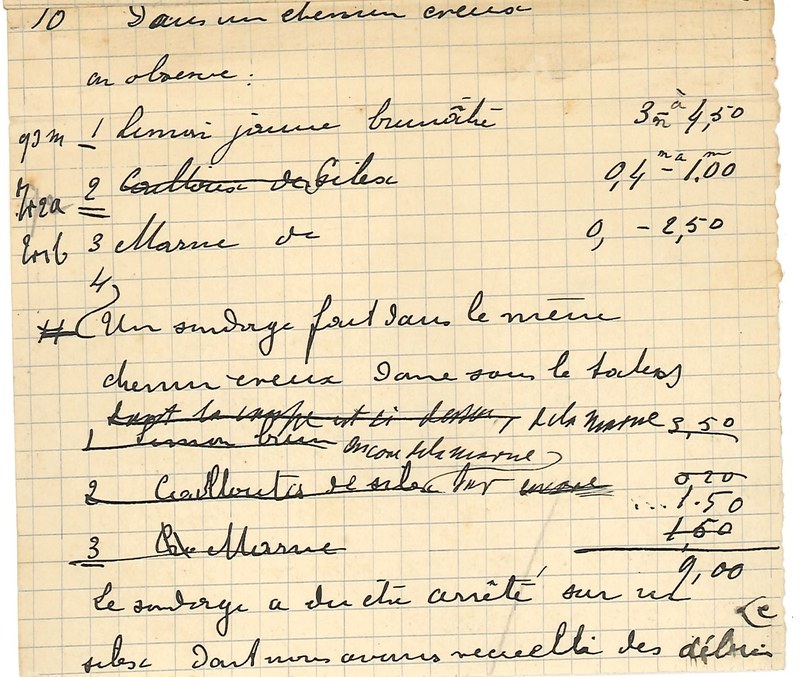 10 Dans un chemin creux
on observe :
q3m 1 Limon jaune brunâtre 3m à 4,50
2 Cailloux de Silex 0,4 m à - 1.00 m
3 Marne de 0, - 2,50
4
Un sondage fait dans le même
chemin creux dans sous le talus
dont la coupe est ci dessus, de la marne 3,50
1 Limon brun encore de la marne
2 Cailloutis de silex sur 0,20
... 1.50
3 Marne 1,50
9,00
Le sondage a du être arrêté sur un
silex dont nous avons recueilli des débris